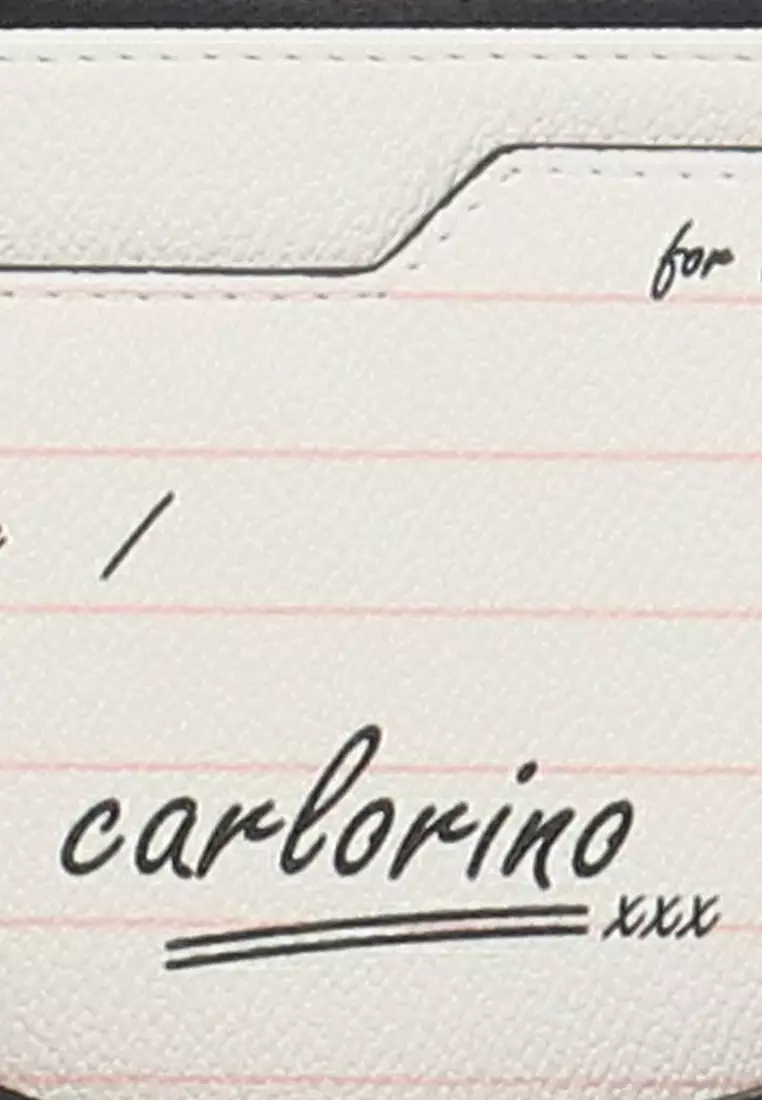 for
/
carlorino
xxx